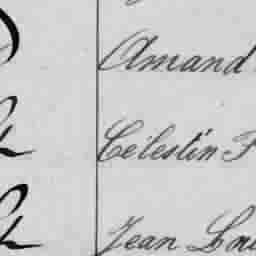 Amand
Célestin F
Jean Lou